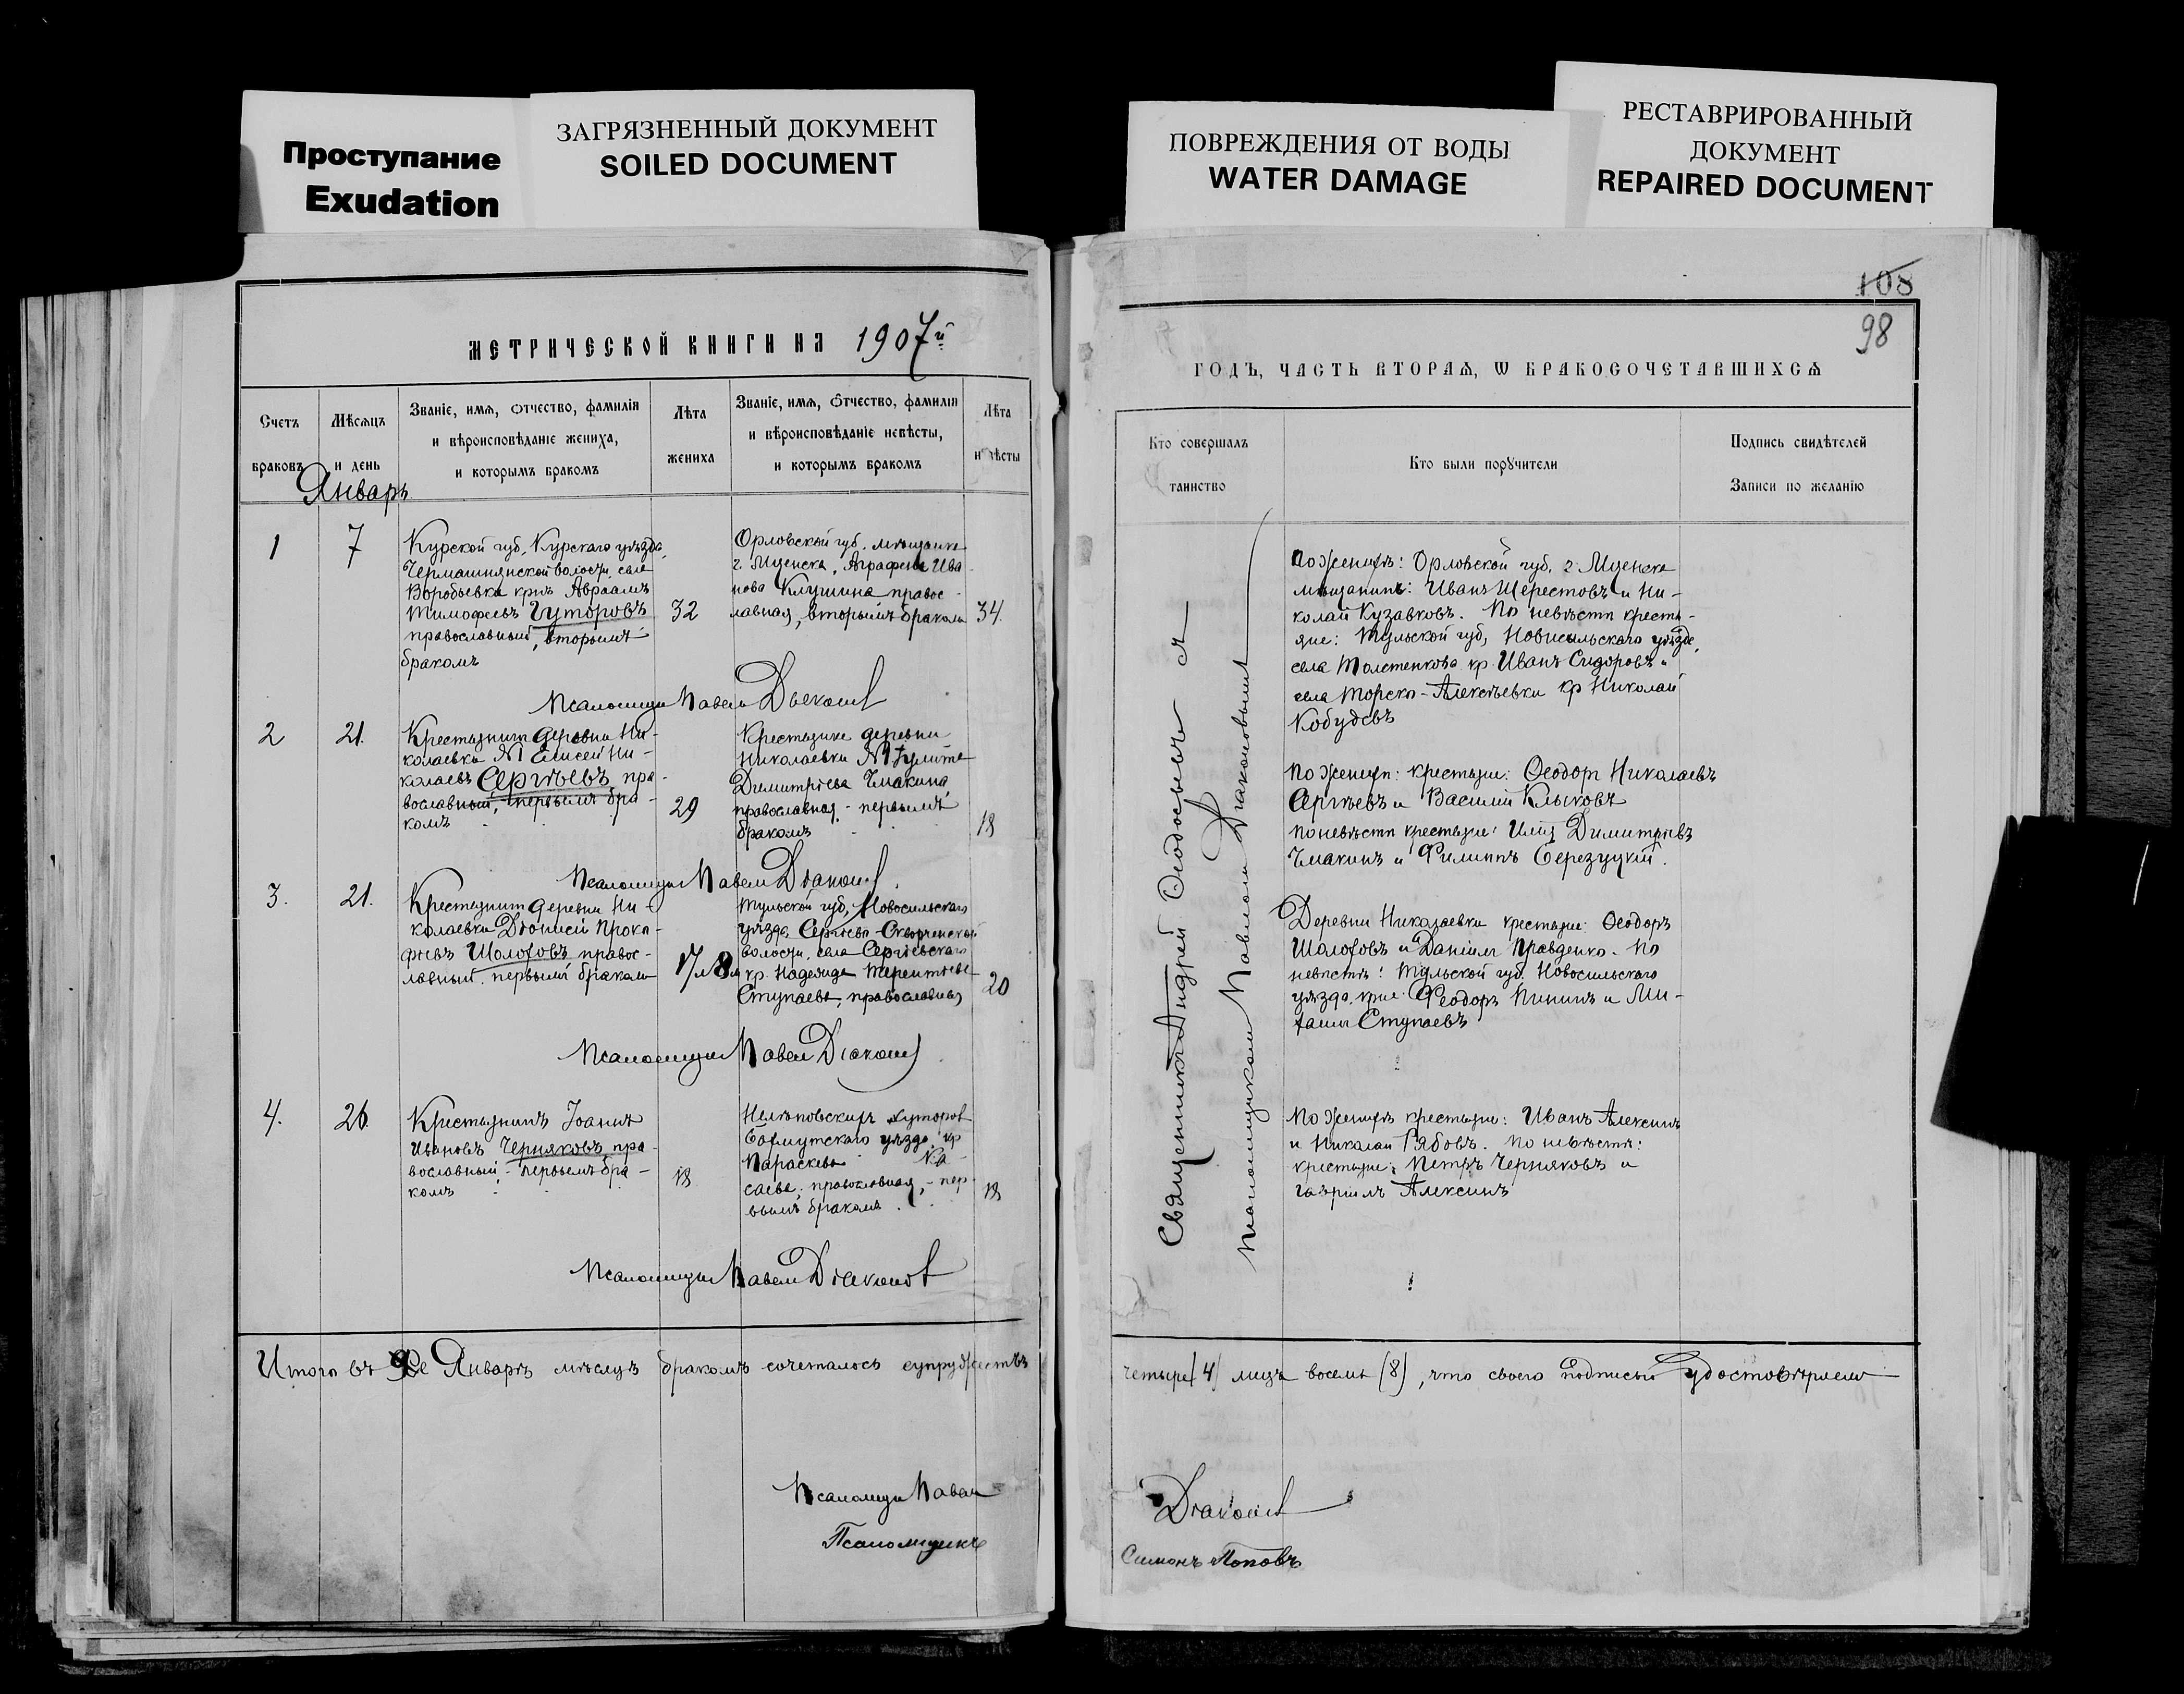 Проступание
Exudation
ЗАГРЯЗНЕННЫЙ ДОКУМЕНТ
SOILED DOCUMENT
ПОВРЕЖДЕНИЯ ОТ ВОДЫ
WATER DAMAGE
РЕСТАВРИРОВАННЫЙ
ДОКУМЕНТ
REPAIRED DOCUMENT
МЕТРИЧЕСКОЙ КНИГИ НА 1907й
Счетъ
браковъ
Мѣсяцъ
и день
Званіе, имя, отчество, фамилія
и вѣроисповѣданіе жениха,
и которымъ бракомъ
Лѣта
жениха
Званіе, имя, отчество, фамилія
и вѣроисповѣданіе невѣсты,
и которымъ бракомъ
Лѣта
невѣсты
Январь
1
7
Курской губ. Курскаго уѣзда,
волости, села
Воробьевка Авраамъ
Тимофеевъ Гуторовъ
православный, вторымъ
бракомъ
32
Орловской губ. мѣщанка
г. Мценска, Аграфена Ива-
нова Клушина правос-
лавная, вторымъ бракомъ
34.
Псаломщикъ Павелъ Дьяконовъ
2
21.
Крестьянинъ деревни Ни-
колаевки Ни-
колаевъ Сергѣевъ, пра-
вославный, - первымъ бра-
комъ
29
Крестьянка деревни
Николаевки
Димитріева Чмакина,
православная - первымъ
бракомъ
18
Псаломщикъ Павелъ Діаконовъ
3.
21.
Крестьянинъ деревни Ни-
колаевки Діонисій Проко-
фьевъ Шолоховъ правос-
лавный. первымъ бракомъ
17 л 8 м
Тульской губ, Новосильскаго
уѣзда, Сергіево-Скворченской
волости, села Сергіевскаго
кр. Надежда Терентьева
Ступаева, православная
20
Псаломщикъ Павелъ Діаконовъ
4.
26
Крестьянинъ Іоаннъ
Ивановъ Черняковъ пра-
вославный, - первымъ бра-
комъ
18
Нелѣповскихъ хуторовъ
Бахмутскаго уѣзда, кр
Параскева
саева, православная, - пер-
вымъ бракомъ
18
Псаломщикъ Павелъ Діаконовъ
Итого въ Январѣ мѣсяцѣ бракомъ сочеталось супружествъ
Псаломщикъ Павелъ
Псаломщикъ
108
98
ГОДЪ, ЧАСТЬ ВТОРАЯ, Ѡ БРАКОСОЧЕТАВШИХСЯ
Кто совершалъ
таинство
Кто были поручители
Подпись свидѣтелей
Записи по желанію
Священникъ Андрей Ѳеодосьевъ съ
псаломщикомъ Павломъ Діаконовымъ
По женихѣ: Орловской губ, г Мценска
мѣщанинъ: Иванъ Шерестовъ и Ни-
колай Кузавковъ. По невѣстѣ кресть-
яне: Тульской губ, Новосильскаго уѣзда,
села Толстенкова кр. Иванъ Сидоровъ и
села Алексѣевки кр Николай
Кобудевъ
По женихѣ: крестьяне: Ѳеодоръ Николаевъ
Сергѣевъ и Василій Клыковъ
По невѣстѣ крестьяне: Илія Димитріевъ
Чмакинъ и Филиппъ Березуцкій.
Деревни Николаевки крестьяне: Ѳеодоръ
Шолоховъ и Даніилъ Правденко. По
невѣстѣ: Тульской губ. Новосильскаго
уѣзда. крне. Феодоръ Пининъ и Ми-
хаилъ Ступаевъ
По женихѣ крестьяне: Иванъ Алексинъ
и Николай Рябовъ. По невѣстѣ:
крестьяне: Петръ Черняковъ и
Гавріилъ Алексинъ
четыре (4) лицъ восемь (8), что своею подписью удостовѣряемъ
Діаконовъ
Симонъ Поповъ